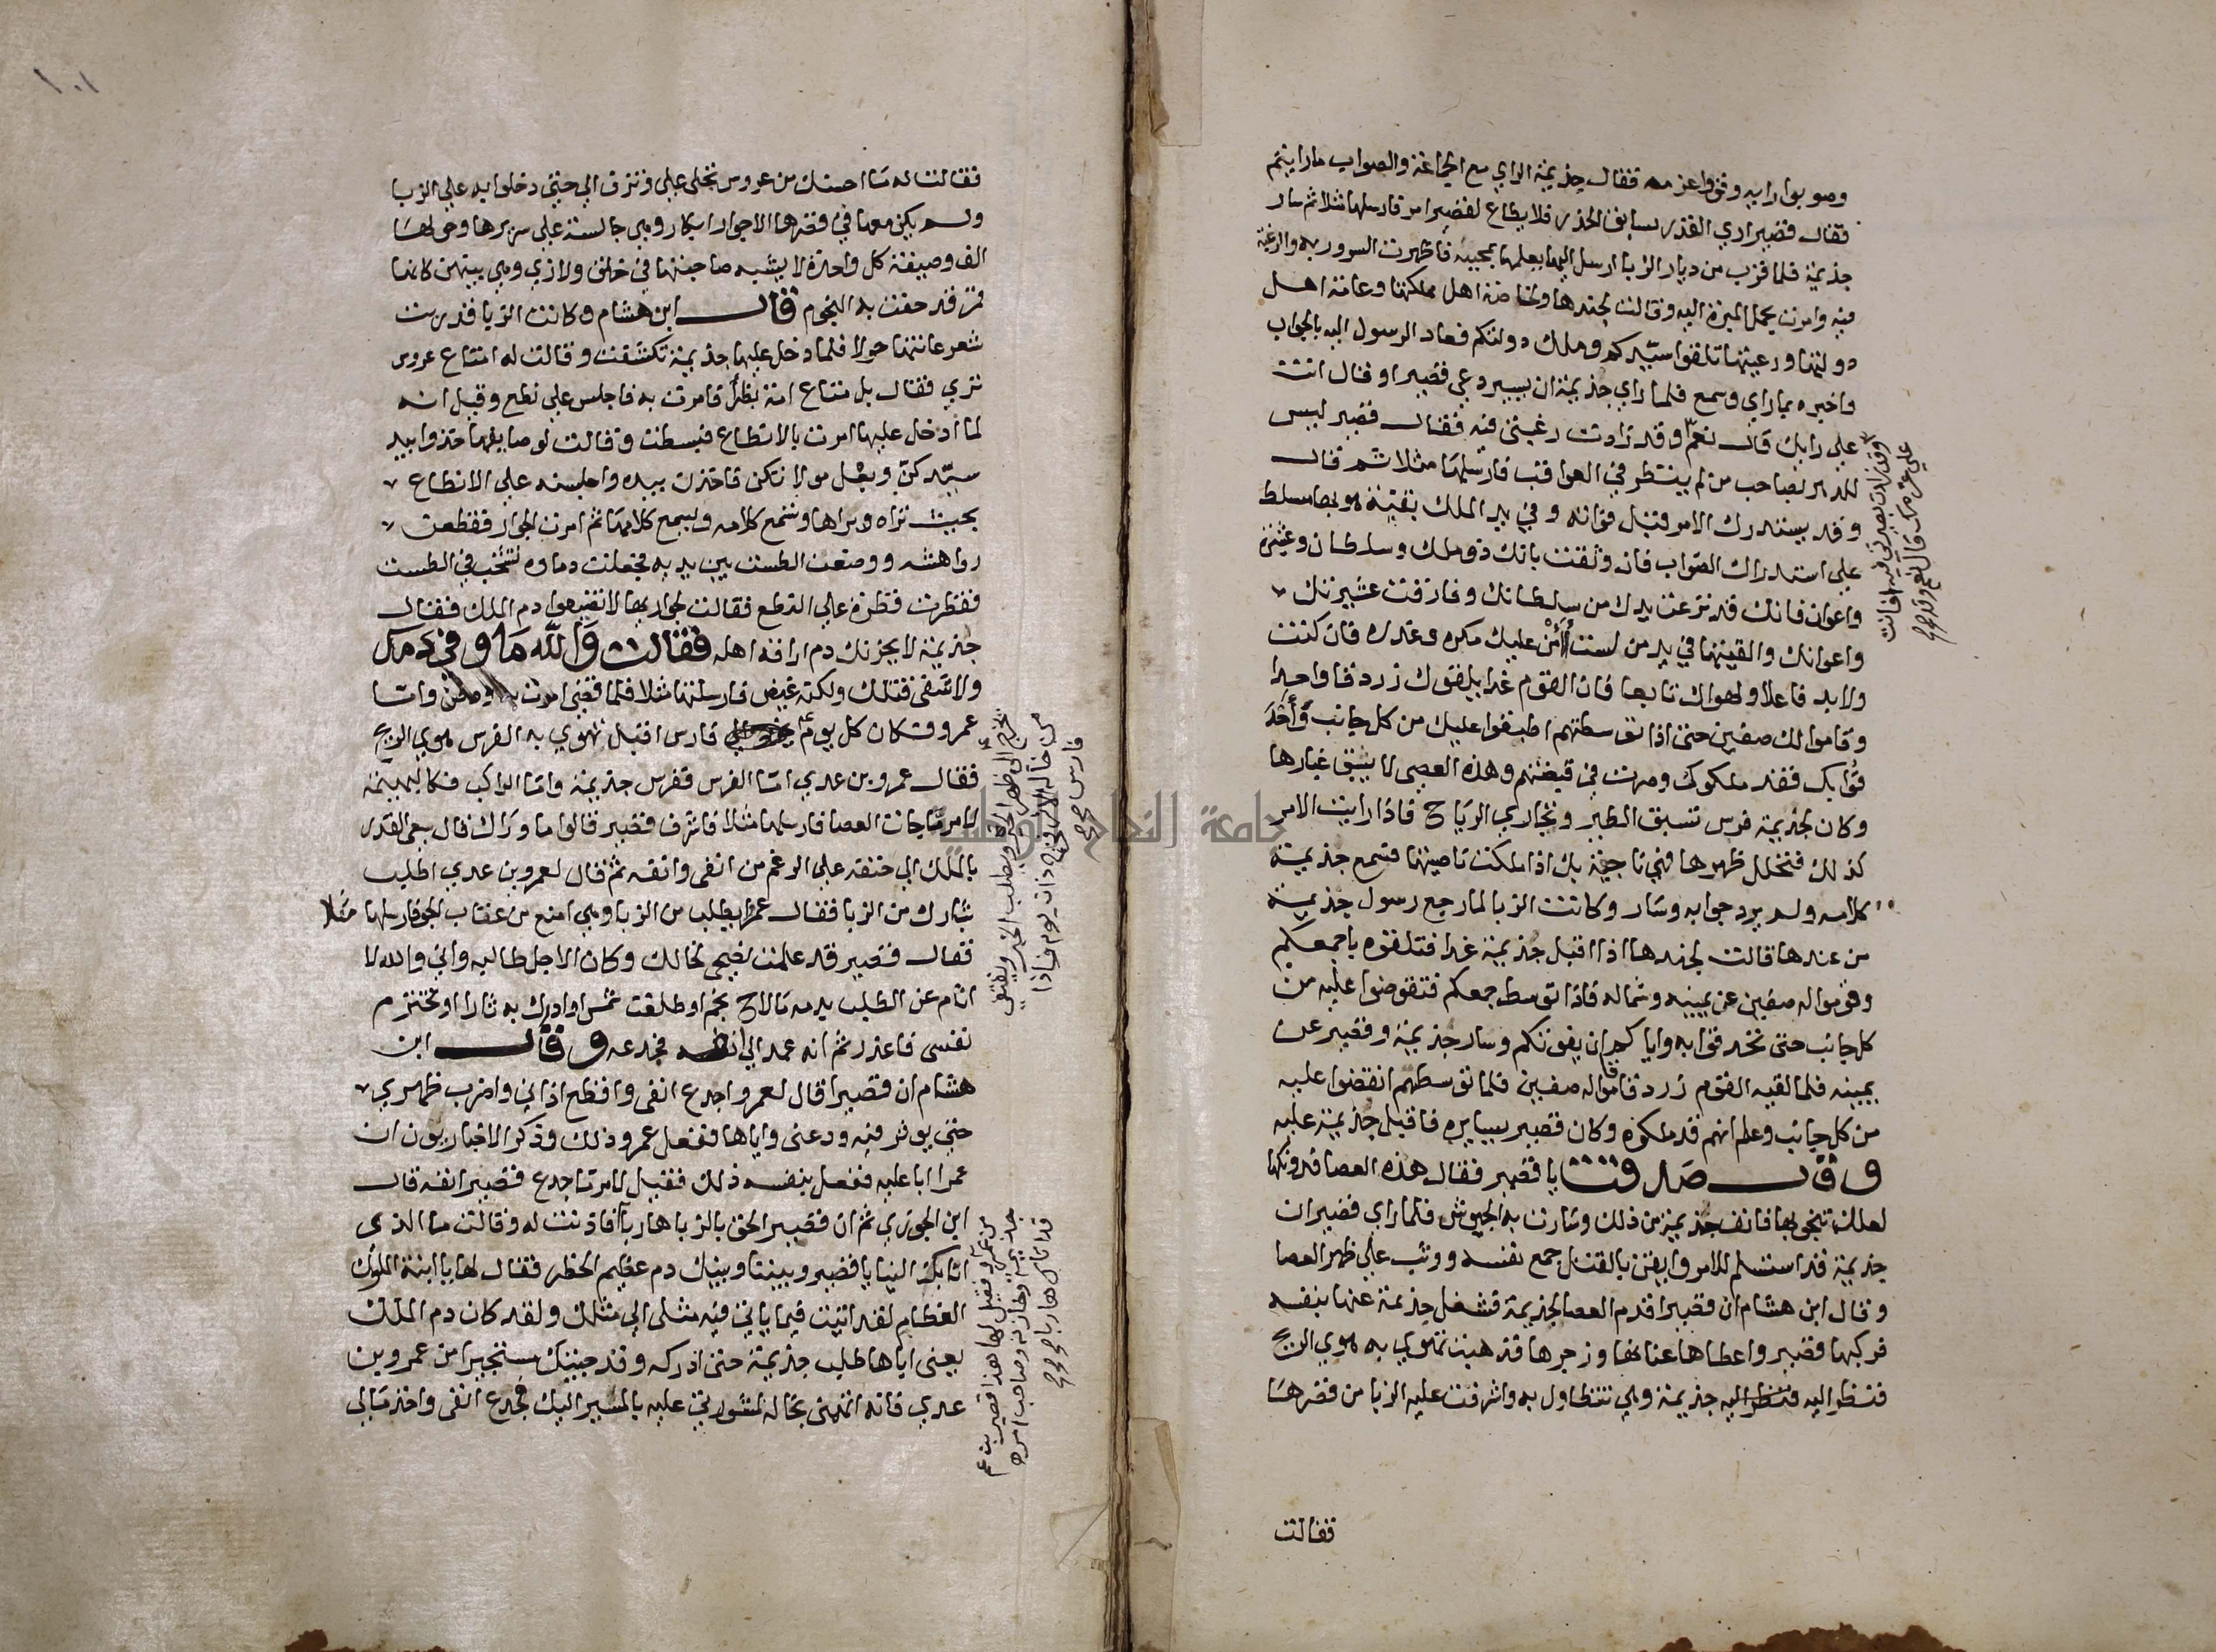 وصوبوا رايه وقووا عزمه فقال جذيمة الراي مع الجماعة والصواب ما رايتم
فقال قصير اري القدر يسابق الحذر فلا يطاع لقصير امر فارسلها مثلا ثم سار
جذيمة فلما قرب من ديار الزبا ارسل اليها يعلمها بمجيئه فاظهرت السرور به والرغبة
فيه وامرت بحمل الميرة اليه وقالت لجندها ولخاصة اهل مملكتها وعامة اهل
دولتها ورعيتها تلقوا سيدكم وملك دولتكم فعاد الرسول اليه بالجواب
واخبره بما راي وسمع فلما راي جذيمة ان يسير دعي قصيرا وقال انت
علي رايك قال نعم وقد زادت رغبتي فيه فقال قصير ليس
للدهر بصاحب من لم ينظر في العواقب فارسلها مثلا ثم قال
وقد يستدرك الامر قبل فواته وفي يد الملك بقية هو بها مسلط
علي استدراك الصواب فان وثقت بانك ذو ملك وسلطان وعشيرة
واعوان فانك قد نزعت يدك من سلطانك وفارقت عشيرتك
واعوانك والقيتها في يد من لست آمن عليك مكره وغدره فان كنت
ولا بد فاعلا ولهواك تابعا فان القوم غدا يلقوك زردقا واحدا
وقاموا لك صفين حتى اذا توسطتهم اطبقوا عليك من كل جانب وأحد
قوا بك فقد ملكوك وصرت في قبضتهم وهذه العصى لا يسبق غبارها
وكان لجذيمة فرس تسبق الطير وتجاري الرياح فاذا رايت الامر
كذلك فتخلل ظهرها فهي ناجية بك اذا ملكت ناصيتها فسمع جذيمة
كلامه ولم يرد جوابه وسار وكانت الزبا لما رجع رسول جذيمة
من عندها قالت لجندها اذا اقبل جذيمة غدا فتلقوه باجمعكم
وقوموا له صفين عن يمينه وشماله فاذا توسط جمعكم فتقوضوا عليه من
كل جانب حتى تحدقوا به واياكم ان يفوتكم وسار جذيمة وقصير عن
يمينه فلما لقيه القوم زردقا قاموا له صفين فلما توسطهم انقضوا عليه
من كل جانب وعلم انهم قد ملكوه وكان قصير يسايره فاقبل جذيمة عليه
وقال صدقت يا قصير فقال هذه العصا فدونكها
لعلك تنجي بها فانف جذيمة من ذلك وسارت به الجيوش فلما راي قصير ان
جذيمة قد استسلم للامر وايقن بالقتل جمع نفسه ووثب علي ظهر العصا
وقال ابن هشام ان قصيرا قدم العصا لجذيمة فشغل جذيمة عنها بنفسه
فركبها قصير واعطاها عنانها وزجرها فذهبت تهوي به هوي الريح
فنظر اليه جذيمة وهي تتطاول به واشرفت عليه الزبا من قصرها
فقالت
فقالت له ما احسنك من عروس تجلى علي وتزف الي حتى دخلوا به علي الزبا
ولم يكن معها في قصرها الا جوار ابكار وهي جالسة علي سريرها وحولها
الف وصيفة كل واحدة لا يشبه صاحبتها في خلق ولا زي وهي بينهن كانها
قمر قد حفت به النجوم قال ابن هشام وكانت الزبا قد ربت
شعر عانتها حولا فلما دخل عليها جذيمة تكشفت وقالت له امتاع عروس
تري فقال بل متاع امة بظرا فامرت به فاجلس علي نطع وقيل انه
لما أدخل عليها امرت بالانطاع فبسطت وقالت لوصايفها خذوا بيد
سيدكن وبعل مولاتكن فاخذن بيده واجلسنه علي الانطاع
بحيث تراه ويراها وتسمع كلامه ويسمع كلامها ثم امرت الجوار فقطعن
رواهشه ووضعت الطست بين يديه فجعلت دماوه تشخب في الطست
فقطرت قطرة علي النطع فقالت لجواريها لا تضيعوا دم الملك فقال
جذيمة لا يحزنك دم اراقه اهله فقالت والله ما وفي دمك
ولا شفى قتلك ولكنه غيض فارسلتها مثلا فلما قضى امرت به فدفن واما
عمرو فكان كل يوم فارس اقبل تهوي به الفرس هوي الريح
فقال عمرو بن عدي اما الفرس ففرس جذيمة واما الراكب فكالبهيمة
لامر ما جات العصا فارسلها مثلا فاشرف قصير قالوا ما وراك قال سعى القدر
بالملك الي حتفه علي الرغم من انفى وانفه ثم قال لعمرو بن عدي اطلب
بثارك من الزبا فقال عمرو ايطلب من الزبا وهي امنع من عقاب الجو فارسلها مثلا
فقال قصير قد علمت نصحي لخالك وكان الاجل طالبه واني والله لا
انام عن الطلب بدمه ما لاح نجم او طلعت شمس او ادرك به ثارا او تخترم
نفسى فاعذر ثم انه عمد الي انفه فجدعه وقال ابن
هشام ان قصيرا قال لعمرو اجدع انفى واقطع اذاني واضرب ظهري
حتى يوثر فيه ودعنى واياها ففعل عمرو ذلك وذكر الاخباريون ان
عمرا ابا عليه ففعل بنفسه ذلك فقيل لامر ما جدع قصير انفه قال
ابن الجوزي ثم ان قصير الحق بالزبا هاربا فاذنت له وقالت ما الذى
اتا بك الينا يا قصير وبيننا وبينك دم عظيم الخطر فقال لها يا ابنة الملوك
العظام لقد اتيت فيما ياتي فيه مثلى الي مثلك ولقد كان دم الملك
يعنى اياها طلب جذيمة حتى ادركه وقد جيتك مستجيرا من عمرو بن
عدي فانه اتهمنى بخاله لمشورتي عليه بالمسير اليك فجدع انفى واخذ مالي